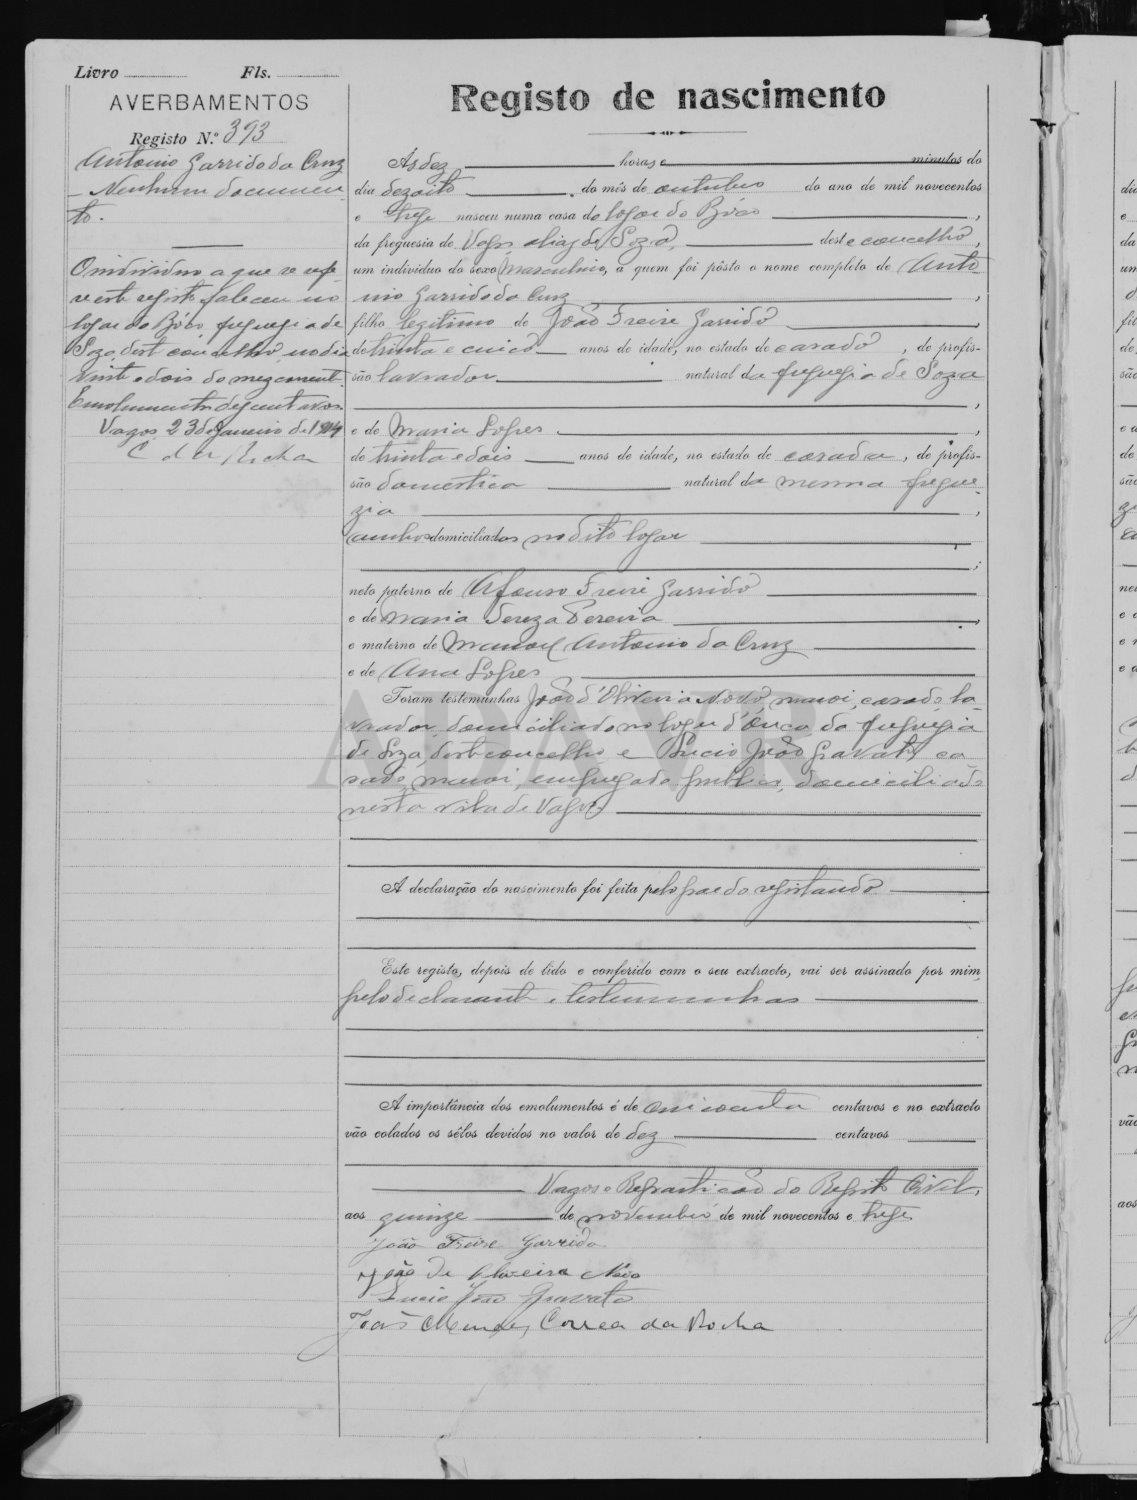 Livro Fls.
AVERBAMENTOS
Registo N.º 393
Antonio Garrido da Cruz
- Nenhum documen
to.
O individuo a que se refe
re este registo faleceu no
logar do Bóco freguesia de
Soza, deste concelho no dia
vinte e dois do mez corrente.
Emolumentos dez centavos
Vagos 23 de Janeiro de 1914
C da Rocha
Registo de nascimento
Ás dez horas e minutos do
dia dezoito do mês de outubro do ano de mil novecentos
e treze nasceu numa casa do logar do Bóco,
da freguesia de Vagos aliaz de Soza, deste concelho,
um individuo do sexo masculino, a quem foi pôsto o nome completo de Anto
nio Garrido da Cruz,
filho legitimo de João Freire Garrido
de trinta e cinco anos de idade, no estado de casado, de profis-
são lavrador natural da freguesia de Soza
,
e de Maria Lopes,
de trinta e dois anos de idade, no estado de casada, de profis-
são domestica natural da mesma fregue-
zia,
ambos domiciliados no dito logar
;
neto paterno de Afonso Freire Garrido
e de Maria Tereza Pereira,
e materno de Manoel Antonio da Cruz
e de Ana Lopes
Foram testemunhas João d'Oliveira Novo, maior, casado, la-
vrador, domiciliado no logar d'Ouca da freguesia
de Soza, deste concelho e Lucio João Gravato, ca
sado, maior, empregado publico, domiciliado
nesta vila de Vagos
A declaração do nascimento foi feita pelo pae do registando
Este registo, depois de lido e conferido com o seu extracto, vai ser assinado por mim,
pelo declarante e testemunhas
A importância dos emolumentos é de cincoenta centavos e no extracto
vão colados os sêlos devidos no valor de dez centavos
Vagos e Repartição do Registo Civil,
aos quinze de novembro de mil novecentos e treze
João Freire Garrido
João de Oliveira Novo
Lucio João Gravato
João Mendes Correa da Rocha